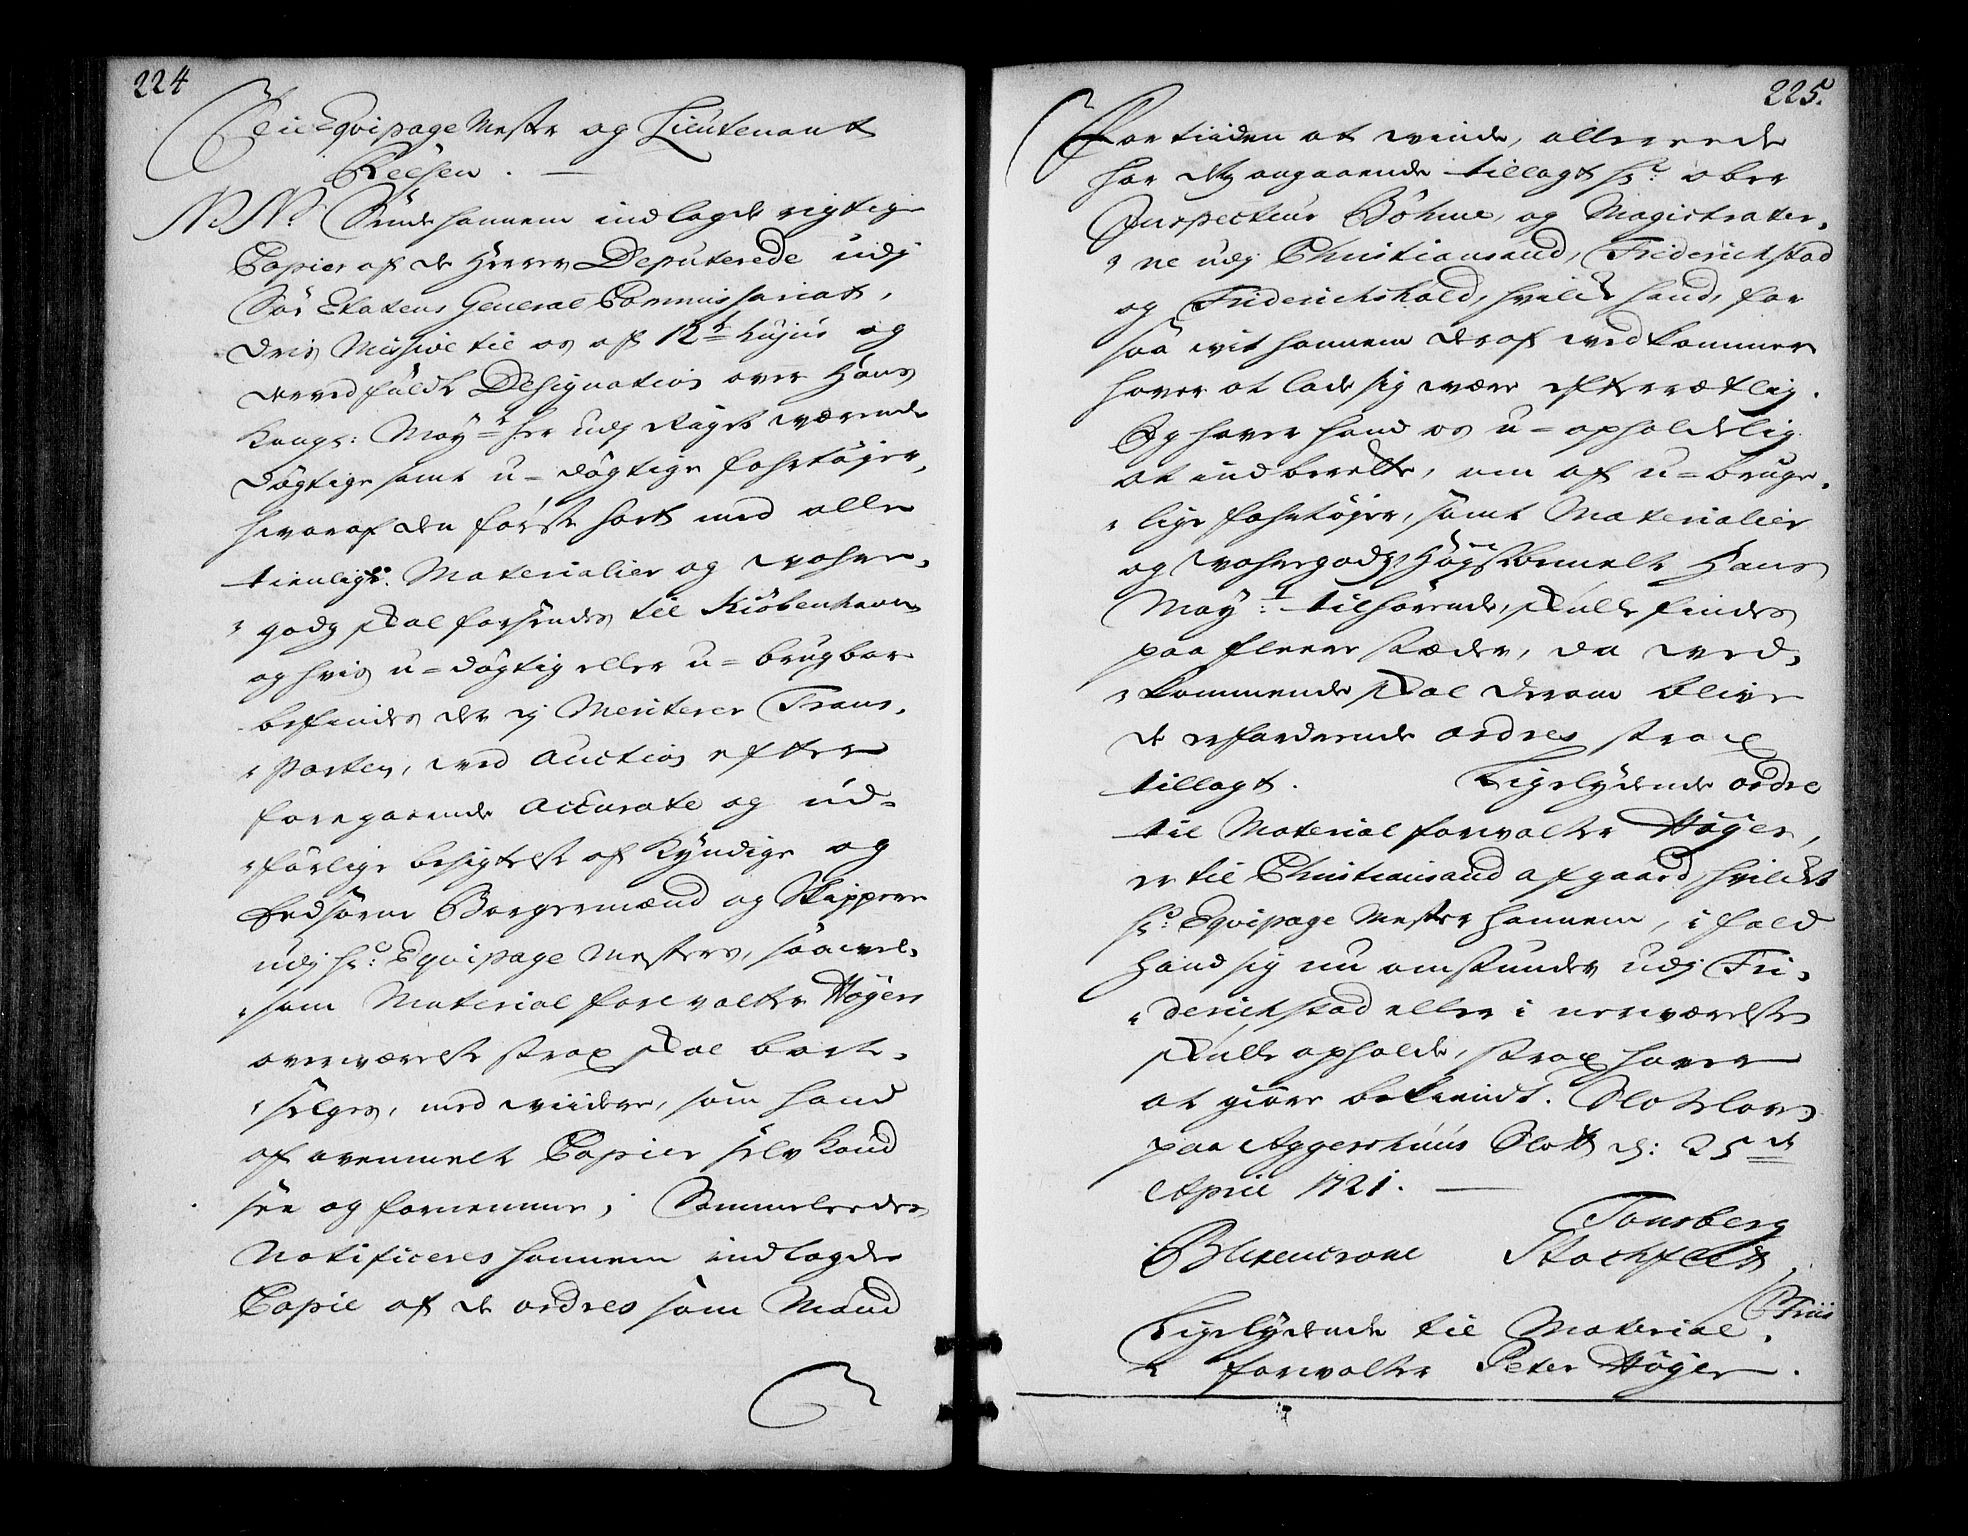 224
Til Equipage Mester og Lieutenant
Reesen.
N. N. Sende hannem indlagde rigtige
Copier af de Herrer Deputerede udj
Söe Etatens General Commissariat,
dris Missive til os af 12te hujus og
derved fuldte Designation over Hans
Kongl: Mayts her udj Riget værende
dögtige samt u-dögtige fahrtöyer,
hvoraf den förste sort med alle
tienlige Materialier og wahre-
godz skal forsendes til Kiöbenhavn
og hvis u-dögtig eller u-brugbar
befindes der ej Meriterer Trans-
porten, ved Auction efter
foregaaende Accurate og ud-
förlige besigtelse af Kyndige og
Eedsorne Borgermænd og Skippere
udj Hr: Equipage Mesters, saavel-
som Material forvalter Höyers
overværelse strax skal bort-
selges, med viidere, som hand
af ovenmelt Copier selv kand
see og fornemme; Sammeleedes
Notificeres hannem indlagde
Copie af de ordres som Mand
225.
For tiiden at vinde, allereede
har der angaaende tillagt Hr: ober
Inspecteur Böhme, og Magistrater-
ne udj Christiansand, Friderichstad
og Friderichshald, hvilke hand, for
saa vit hannem deraf vedkommer
haver at lade sig være efterrætlig.
Og haver hand os u-opholdelig
at indberette, om af u-bruge-
lige fahrtöyer, samt Materialier
og wahregodz Högstbemelte Hans
Mayt: tilhörende, skulle findes
paa fleere stæder, da ved-
kommende skal derom blive
de erfordrende ordres strax
tillagt. Ligelydende ordre
til Material forvalter Höyer,
er til Christiansand afgaaed, hvilket
Hr: Equipage Mester hannem, i fald
hand sig nu omstunder udj Fri-
derichstad eller i nerværelse
skulle opholde, strax haver
at giöre bekiendt. Slotzlov
paa Aggershuus Slott d: 25de
April 1721.
Tonsberg
Blixencrone Stochfledt
C Friis
Ligelydende til Material-
forvalter Peter Höyer.